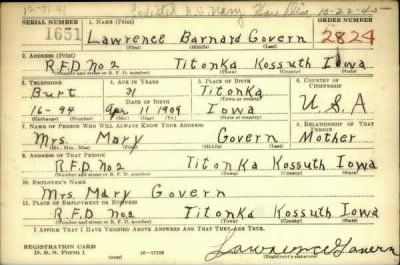 12-31-41 Enlisted U.S. Navy 10-22-40
SERIAL NUMBER 1. NAME (Print) ORDER NUMBER
1651 Lawrence Barnard Govern 2824
(First) (Middle) (Last)
2. ADDRESS (Print)
R.F.D. No 2 Titonka Kossuth Iowa
(Number and street or R. F. D. number) (Town) (County) (State)
3. TELEPHONE 4. AGE IN YEARS 5. PLACE OF BIRTH 6. COUNTRY OF CITIZENSHIP
Burt 31 Titonka
DATE OF BIRTH (Town or county)
16-94 Apr 1 1909 Iowa U S A
(Exchange) (Number) (Mo.) (Day) (Yr.) (State or country)
7. NAME OF PERSON WHO WILL ALWAYS KNOW YOUR ADDRESS RELATIONSHIP OF THAT PERSON
Mrs. Mary Govern Mother
(Mr., Mrs., Miss) (First) (Middle) (Last)
8. ADDRESS OF THAT PERSON
R.F.D. No 2 Titonka Kossuth Iowa
(Number and street or R. F. D. number) (Town) (County) (State)
10. EMPLOYER'S NAME
Mrs. Mary Govern
11. PLACE OF EMPLOYMENT OR BUSINESS
R.F.D. No 2 Titonka Kossuth Iowa
(Number and street or R. F. D. number) (Town) (County) (State)
I AFFIRM THAT I HAVE VERIFIED ABOVE ANSWERS AND THAT THEY ARE TRUE.
REGISTRATION CARD
D. S. S. Form 1 16-17105 Lawrence Govern
(Registrant's signature)